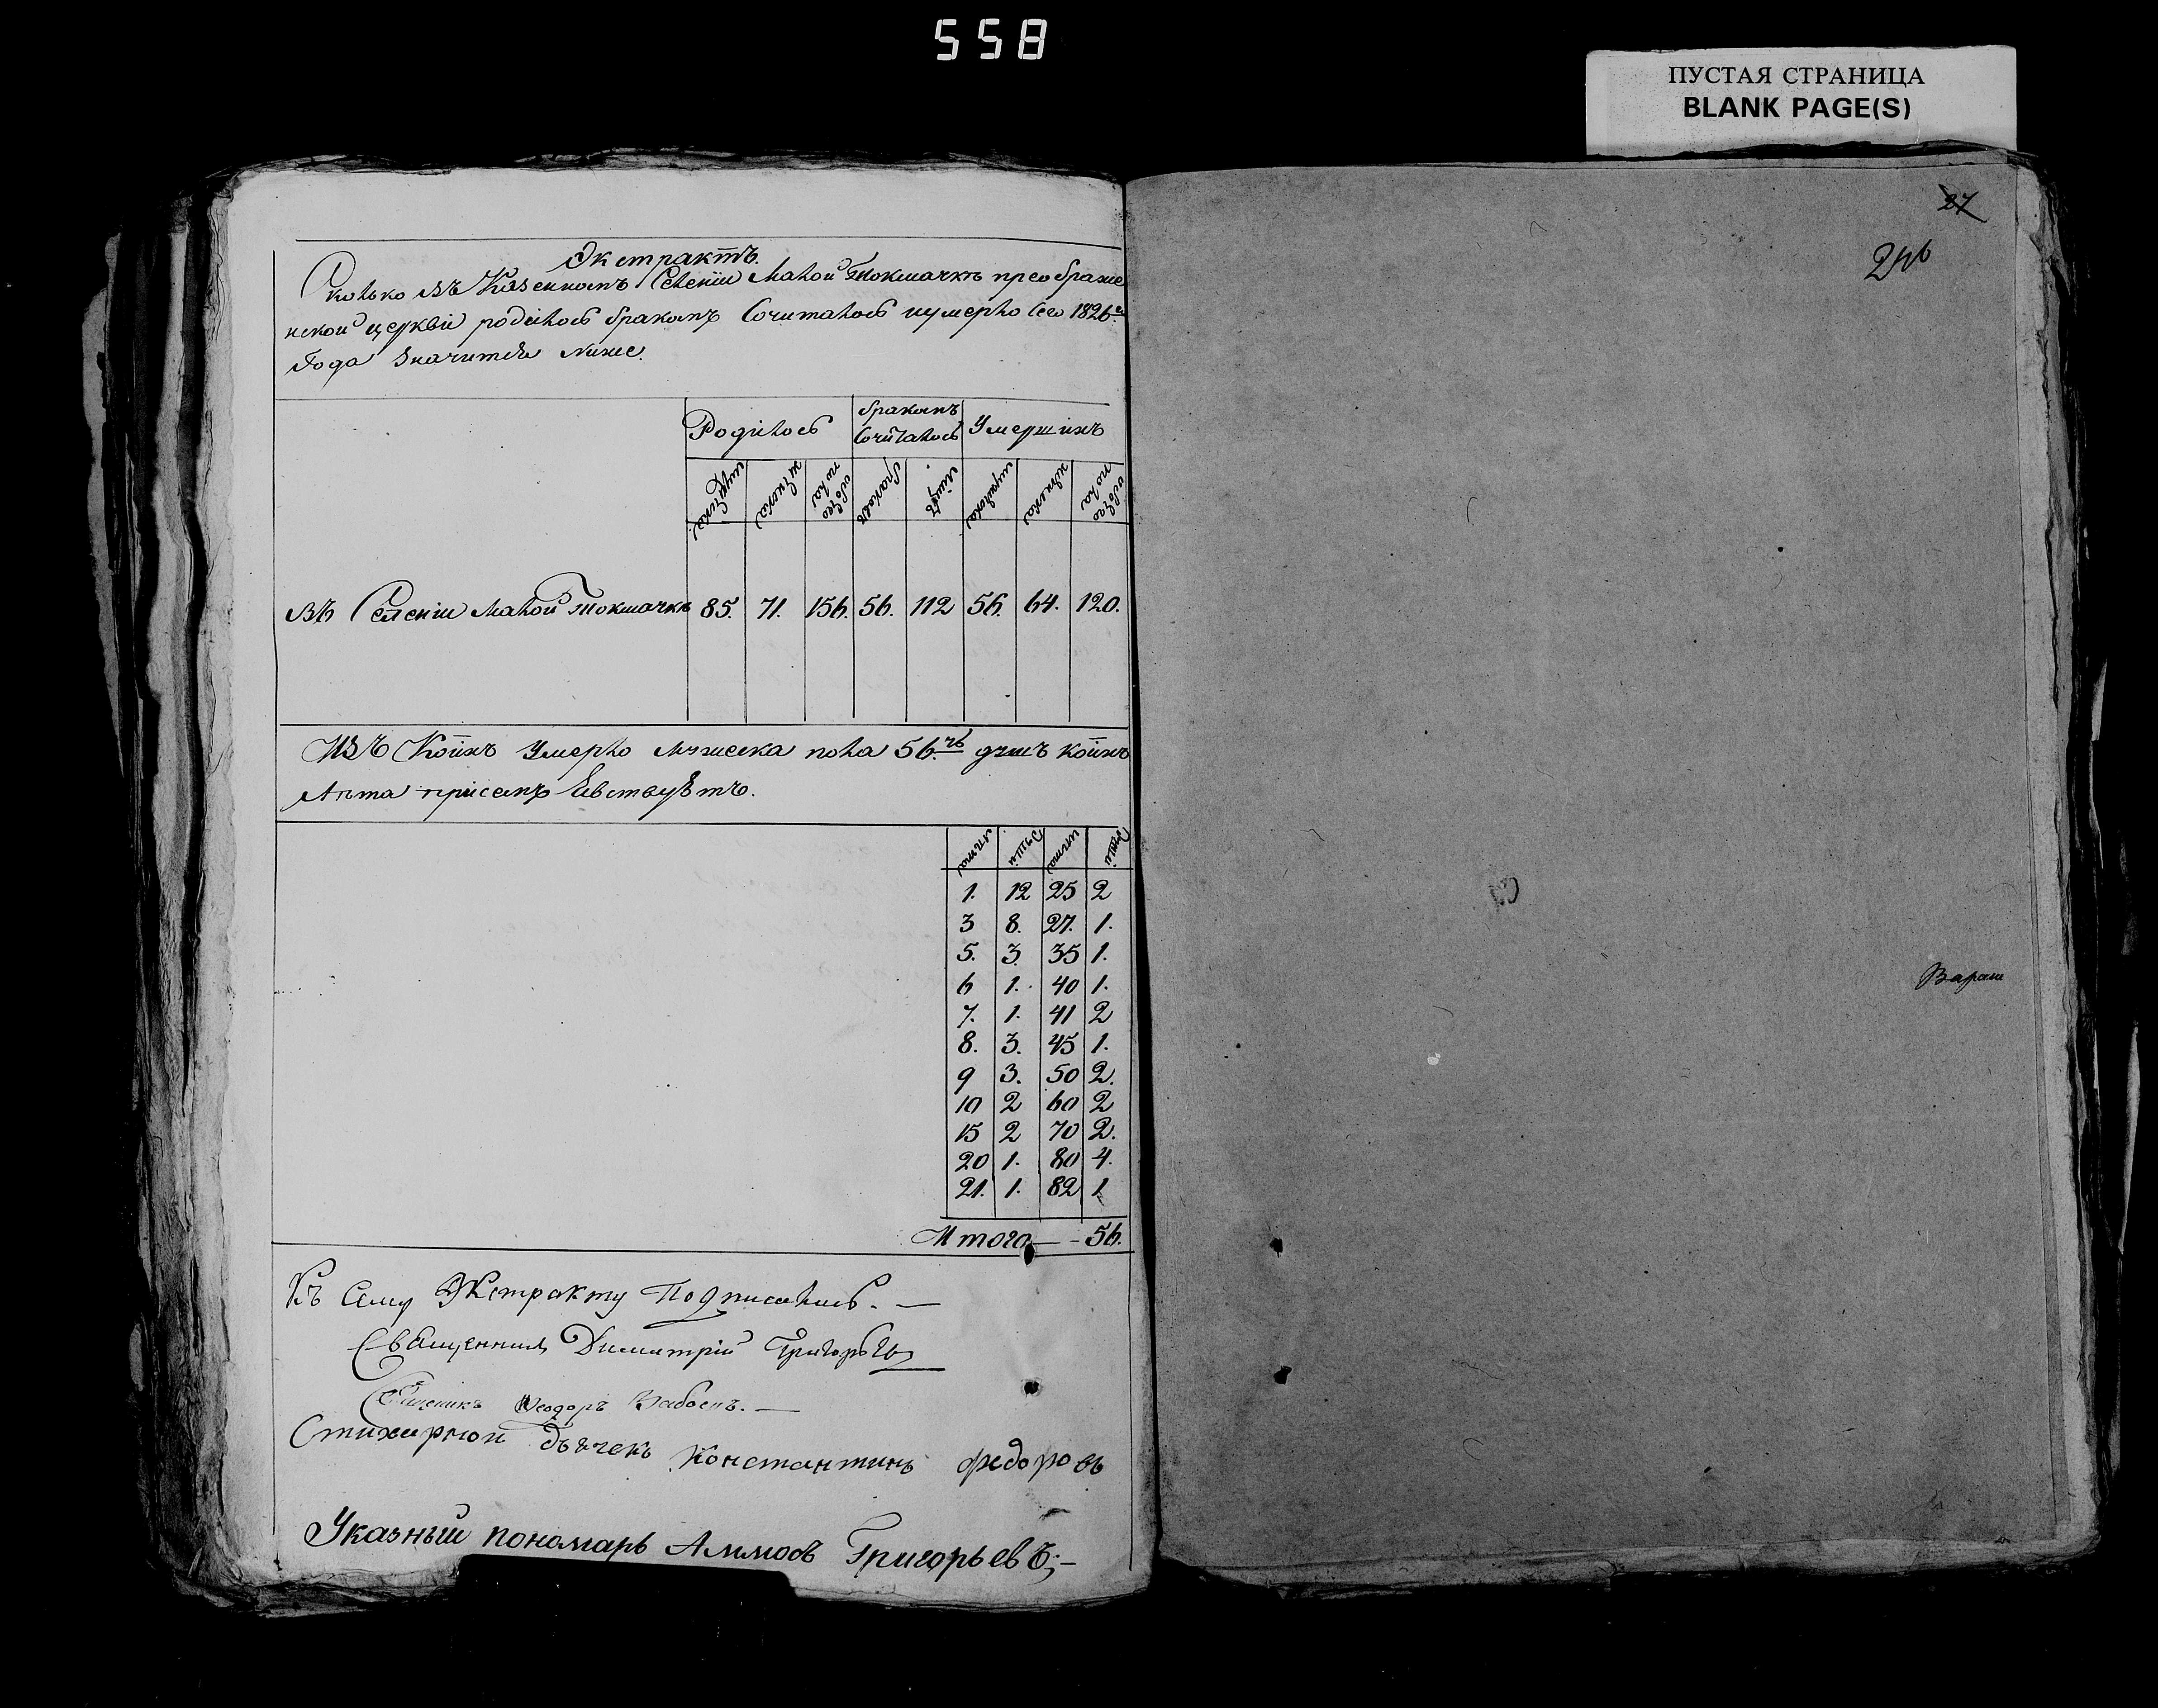 558
ПУСТАЯ СТРАНИЦА
BLANK PAGE(S)
Экстрактъ.
Сколько въ Казенномъ Селеніи Малой Токмачкѣ преображе
нской церкви родилось бракомъ Сочиталось и умерло Сего 1826го
Года Значится Ниже.
Родилось бракомъ Сочиталось Умершихъ
мужеска женска обоего пола браковъ лицъ мужеска женска обоего пола
Въ Селеніи Малой Токмачкѣ 85. 71. 156. 56. 112 56. 64. 120.
Изъ Коихъ Умерло Мужеска пола 56.ть душъ коихъ
Лѣта при семъ Явствуетъ.
лѣта души лѣта души
1. 12 25 2
3 8. 27. 1.
5. 3. 35 1.
6 1. 40 1.
7. 1. 41 2
8. 3. 45 1.
9 3. 50 2.
10 2 60 2
15 2 70 2.
20 1. 80 4.
21. 1. 82 1
Итого — - 56.
Къ Сему Экстракту Подписались. —
Священникъ Димитрій Григорьевъ
Священникъ Ѳеодоръ —
Стихарной дьячекъ Константинъ федоровъ
Указный пономарь Аммосъ Григорьевъ;-
27
246